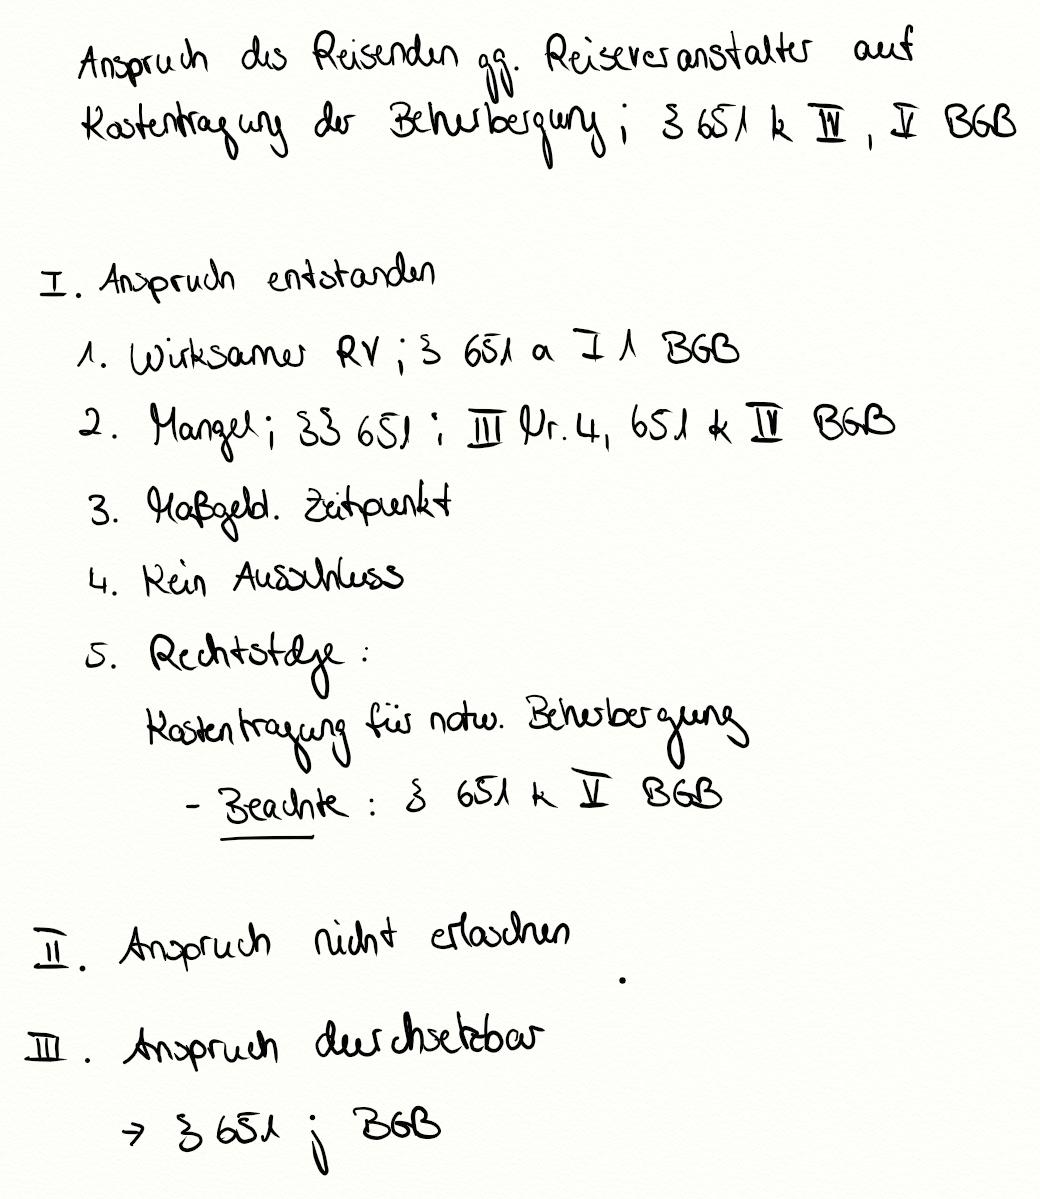 Anspruch des Reisenden gg. Reiseveranstalter auf
Kostentragung der Beherbergung; § 651 k IV, V BGB
I. Anspruch entstanden
1. Wirksamer RV; § 651 a I 1 BGB
2. Mangel; §§ 651 i III Nr. 4, 651 k IV BGB
3. Maßgebl. Zeitpunkt
4. Kein Ausschluss
5. Rechtsfolge:
Kostentragung für notw. Beherbergung
- Beachte: § 651 k V BGB
II. Anspruch nicht erloschen
III. Anspruch durchsetzbar
→ § 651 j BGB